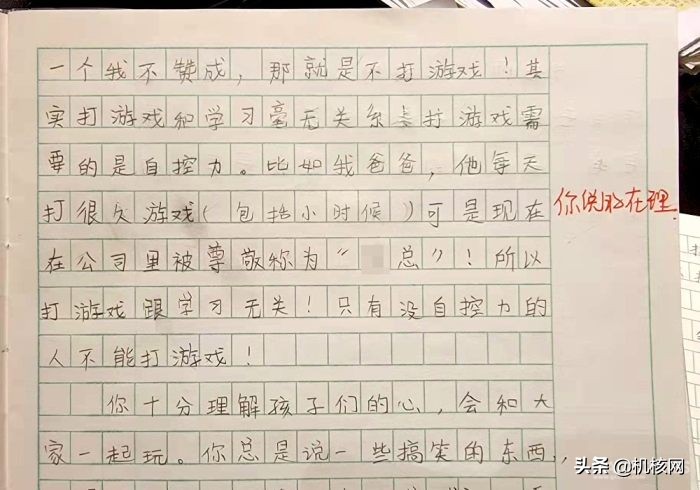 一个我不赞成，那就是不打游戏！其
实打游戏和学习毫无关系，打游戏需
要的是自控力。比如我爸爸，他每天
打很久游戏（包括小时候）可是现在
在公司里被尊敬称为“总”！所以
打游戏跟学习无关！只有没自控力的
人不能打游戏！
你十分理解孩子们的心，会和大
家一起玩。你总是说一些搞笑的东西，
你说的在理
头条@机核网